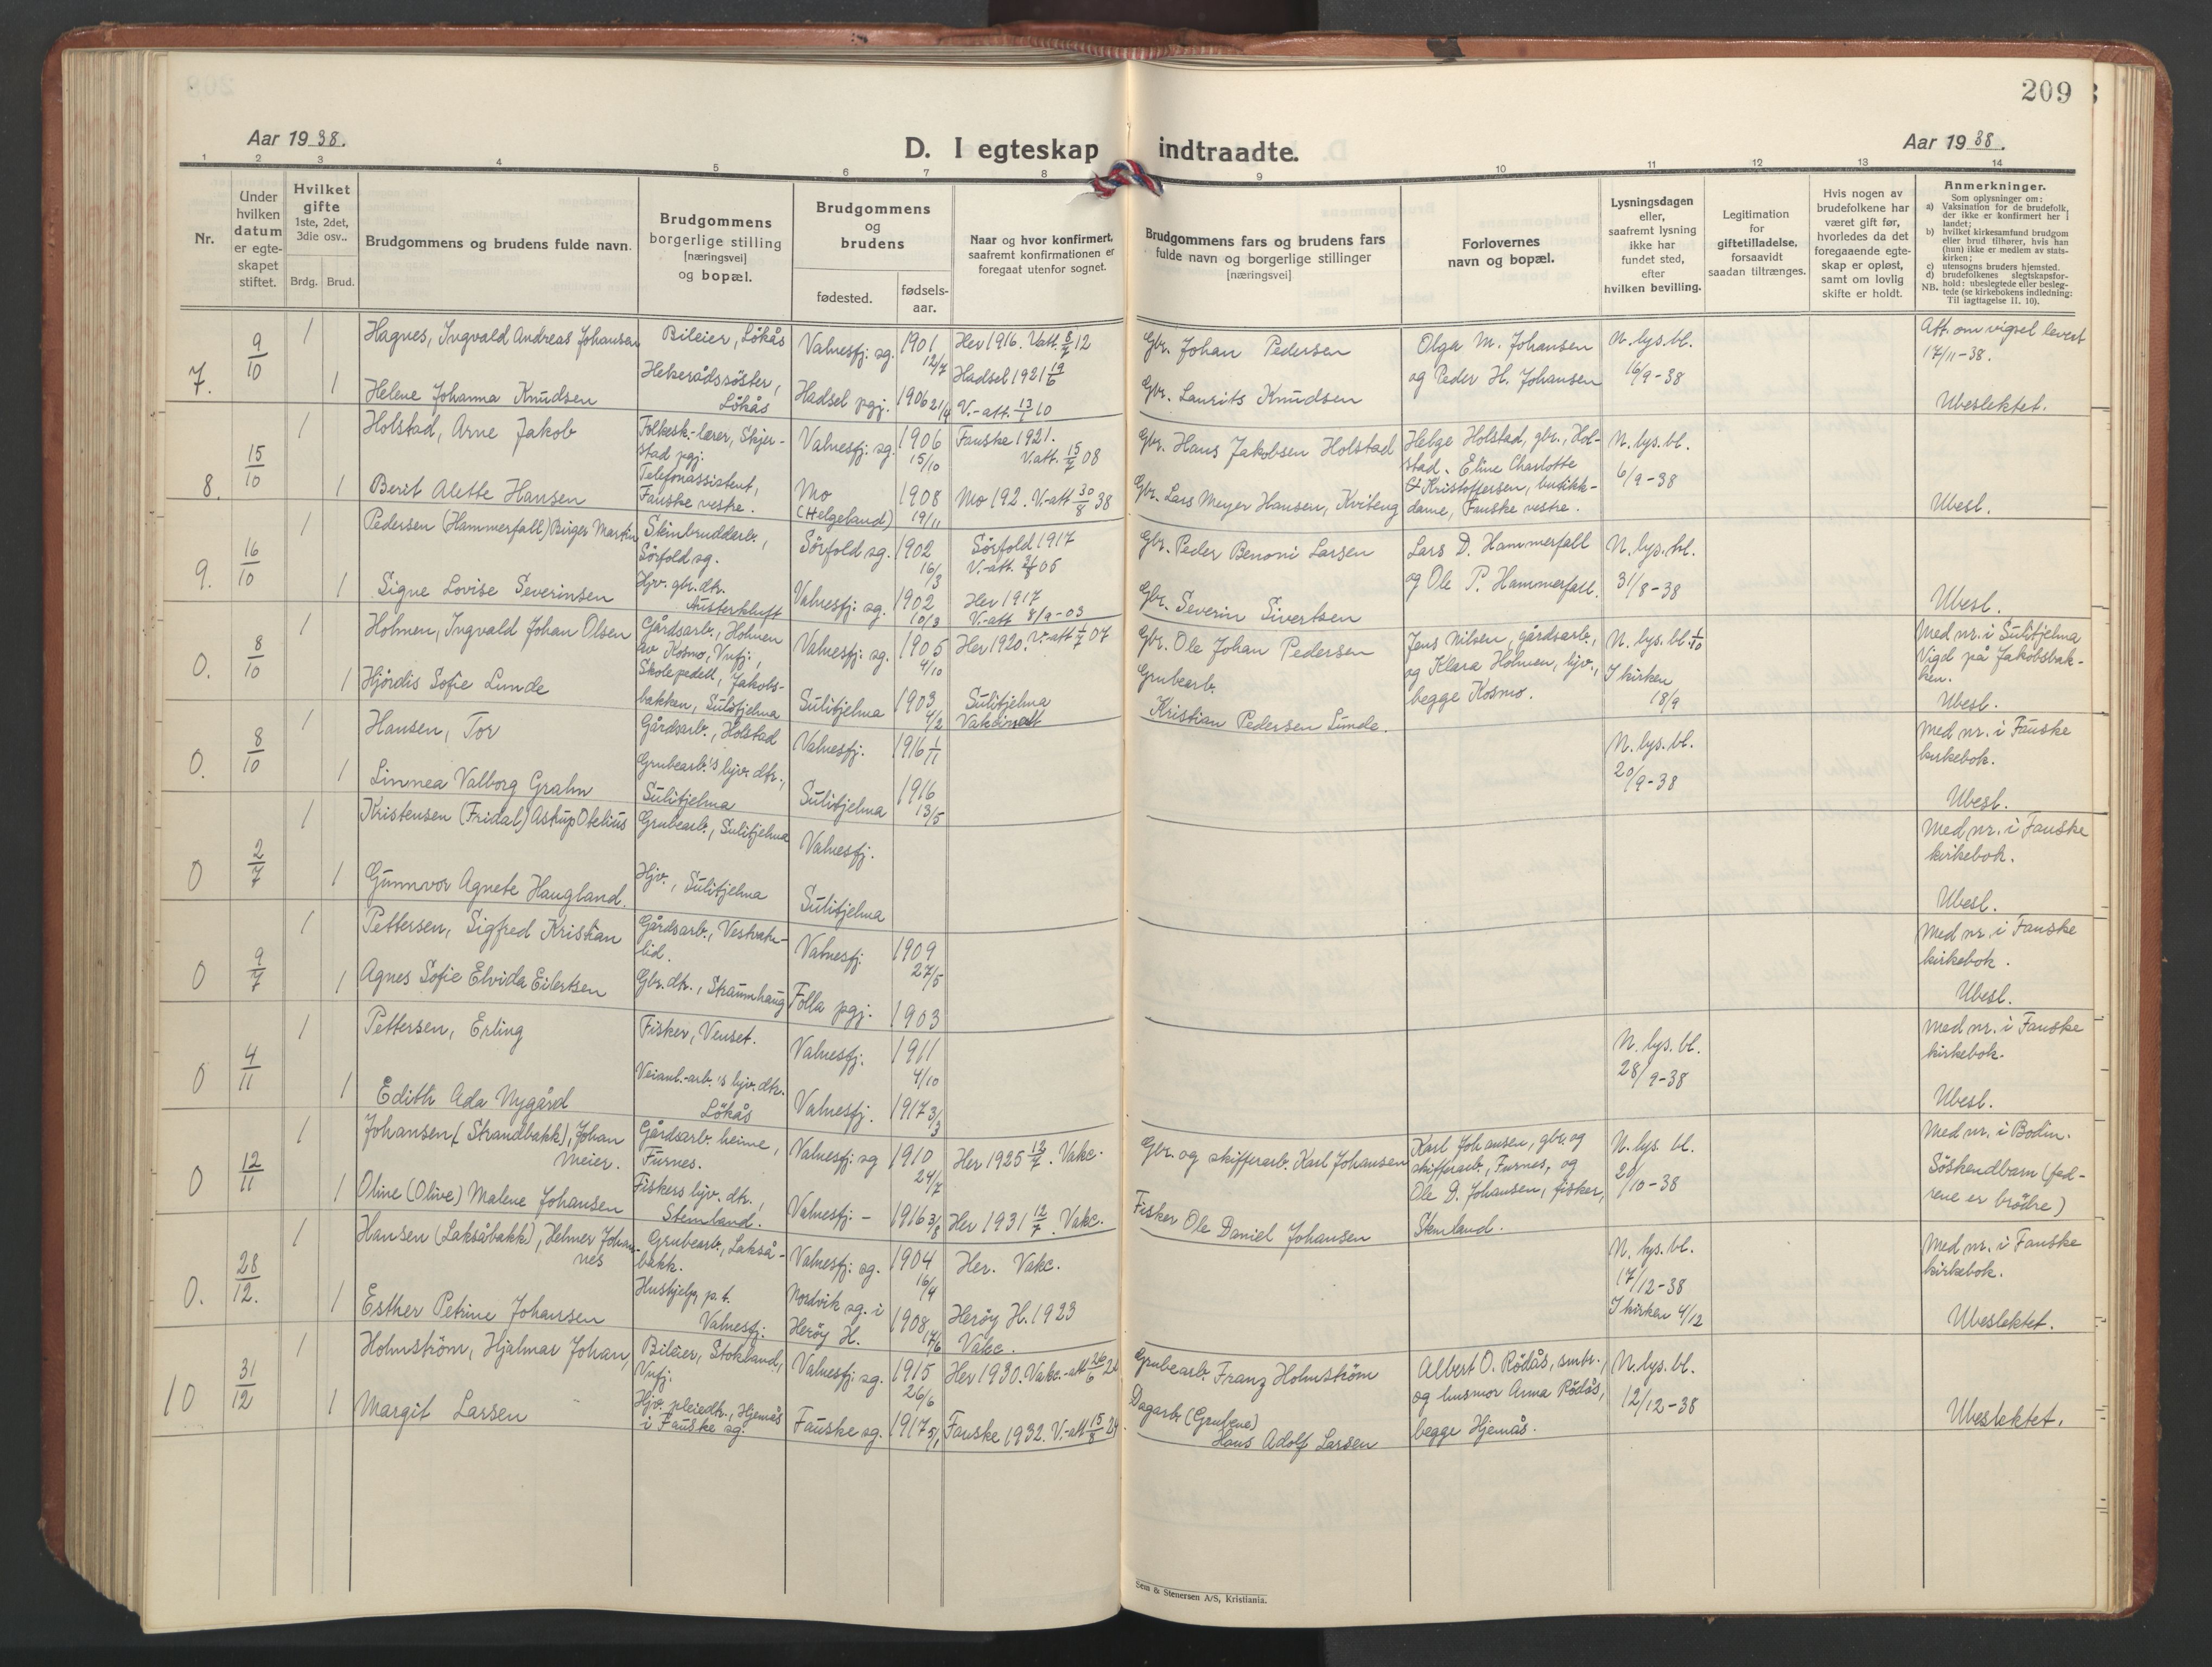 209
Aar 1938.
D. I egteskap indtraadte.
Aar 1938.
1 2 3 4 5 6 7 8 9 10 11 12 13 14
Nr.
Under
hvilken
datum
er egte-
skapet
stiftet.
Hvilket
gifte
1ste, 2det,
3die osv..
Brdg. Brud.
Brudgommens og brudens fulde navn.
Brudgommens
borgerlige stilling
[næringsvei]
og bopæl.
Brudgommens
og
brudens
fødested.
fødsels-
aar.
Naar og hvor konfirmert,
saafremt konfirmationen er
foregaat utenfor sognet.
Brudgommens fars og brudens fars
fulde navn og borgerlige stillinger
[næringsvei]
Forlovernes
navn og bopæl.
Lysningsdagen
eller,
saafremt lysning
ikke har
fundet sted,
efter
hvilken bevilling.
Legitimation
for
giftetilladelse,
forsaavidt
saadan tiltrænges.
Hvis nogen av
brudefolkene har
været gift før,
hvorledes da det
foregaaende egte-
skap er opløst,
samt om lovlig
skifte er holdt.
Anmerkninger.
Som oplysninger om:
a) Vaksination for de brudefolk,
der ikke er konfirmert her i
landet;
b) hvilket kirkesamfund brudgom
eller brud tilhører, hvis han
(hun) ikke er medlem av stats-
kirken;
c) utensogns bruders hjemsted.
d) brudefolkenes slegtskapsfor-
hold: ubeslegtede eller besleg-
NB. tede (se kirkebokens indledning:
Til iagttagelse II. 10).
7. 9/10 1 Hagnes, Ingvald Andreas Johansen Bileier, Lökås Valnesfj. sg. 1901 12/7 Her 1916. Vatt. 8/7 12
Gbr. Johan Pedersen Olga M. Johansen
og Peder H. Johansen N. lys. bl.
16/9-38 Att. om vigsel levert
17/11-38.
1 Helene Johanna Knudsen Helserådssöster,
Lökås Hadsel pgj. 1906 21/4 Hadsel 1921 19/6
V.-att. 13/1 10 Gbr. Laurits Knudsen Ubeslektet.
8. 15/10 1 Holstad, Arne Jakob Folkesk.-lærer, Skjer-
stad pgj. Valnesfj. sg. 1906
15/10 Fauske 1921.
V.att. 15/7 08 Gbr. Hans Jakobsen Holstad Helge Holstad, gbr., Hol-
stad. Eline Charlotte
Kristoffersen, butikk-
dame, Fauske vestre. N. lys. bl.
6/9-38
1 Berit Alette Hansen Telefonassistent,
Fauske vestre. Mo
(Helgeland) 1908
19/11 Mo 192. V.-att 30/8 38 Gbr. Lars Meyer Hansen, Ubesl.
9. 16/10 1 Pedersen (Hammerfall) Birger Martin Steinbruddarb.,
Sörfold sg. Sörfold sg. 1902
16/3 Sörfold 1917
Gbr. Peder Benoni Larsen Lars D. Hammerfall
og Ole P. Hammerfall. N. lys. bl.
31/8-38
1 Signe Lovise Severinsen Hjv. gbr. dtr.
Austerkluft Valnesfj. sg. 1902
10/3 Her 1917
V.-att 8/9-03 Gbr. Severin Sivertsen Ubesl.
0. 8/10 1 Holmen, Ingvald Johan Olsen Gårdsarb., Holmen
av Kosmo, Vnfj. Valnesfj. sg. 1905
4/10 Her 1920. V.-att 1/7 07 Gbr. Ole Johan Pedersen Jens Nilsen, gårdsarb.,
og Klara Holmen, hjv.,
begge Kosmo. N. lys. bl. 1/10
I kirken
18/9 Med nr. i Sulitjelma
Vigd på Jakobsbak-
ken.
1 Hjördis Sofie Lunde Skolepedell, Jakobs-
bakken, Sulitjelma Sulitjelma 1903
4/2 Sulitjelma
Grubearb.
Kristian Pedersen Lunde. Ubesl.
0. 8/10 1 Hansen, Tor Gårdsarb., Holstad Valnesfj. 1916 1/11 N. lys. bl.
20/9-38 Med nr. i Fauske
kirkebok.
1 Linnea Valborg Grahn Grubearb.'s hjv. dtr.,
Sulitjelma Sulitjelma 1916
13/5 Ubesl.
0 2/7 1 Kristensen (Fridal) Astrup Otelius Grubearb., Sulitjelma Valnesfj. Med nr. i Fauske
kirkebok.
1 Gunnvor Agnete Haugland. Hjv., Sulitjelma Sulitjelma Ubesl.
0 9/7 1 Pettersen, Sigfred Kristian Gårdsarb., Vestvatn-
lid. Valnesfj. 1909
27/5 Med nr. i Fauske
kirkebok.
1 Agnes Sofie Elvida Eilertsen Gbr. dtr., Straumhaug Folla pgj. 1903 Ubesl.
0 4/11 1 Pettersen, Erling Fisker, Venset. Valnesfj. 1911
4/10 N. lys. bl.
28/9-38 Med nr. i Fauske
kirkebok.
1 Edith Ada Nygård Veianl.-arb.'s hjv. dtr.
Lökås Valnesfj. 1917 3/3 Ubesl.
0 12/11 1 Johansen (Strandbakk), Johan
Meier. Gårdsarb. heime,
Furnes. Valnesfj. sg 1910
24/7 Her 1925 12/7. Vakc. Gbr. og skifferarb. Karl Johansen Karl Johansen, gbr. og
skifferarb., Furnes, og
Ole D. Johansen, fisker,
Stemland. N. lys. bl.
/10-38 Med nr. i Bodin.
Söskendbarn (fed-
rene er brödre)
1 Oline (Olive) Malene Johansen Fiskers hjv. dtr.,
Stemland. Valnesfj. - 1916 3/8 Her 1931 12/7. Vakc. Fisker Ole Daniel Johansen
0. 28/12. 1 Hansen (Laksåbakk), Helmer Johan-
nes Grubearb., Lakså-
bakk. Valnesfj. sg. 1904
16/4 Her. Vakc. N. lys. bl.
17/12-38
I kirken 4/12 Med nr. i Fauske
kirkebok.
1 Esther Petrine Johansen Hushjelp p.t.
Valnesfj. Nordvik sg. i
Herøy H. 1908
17/6 Herøy H. 1923
Vakc. Ubeslektet.
10 31/12 1 Holmström, Hjalmar Johan, Bileier, Stokland,
Vnfj. Valnesfj. sg. 1915
26/6 Her 1930. Vakc.-att 26/6 Grubearb. Franz Holmström Albert O. Rödås, smbr.,
og husmor Anna Rödås,
begge Hjemås. N. lys. bl.
12/12-38
1 Margit Larsen Hjv. pleiedtr., Hjemås
i Fauske sg. Fauske sg. 1917 5/1 Fauske 1932. V.-att 15/8 24 Dagarb. (Grubene)
Hans Adolf Larsen Ubeslektet.
Sem & Stenersen A/S, Kristiania.